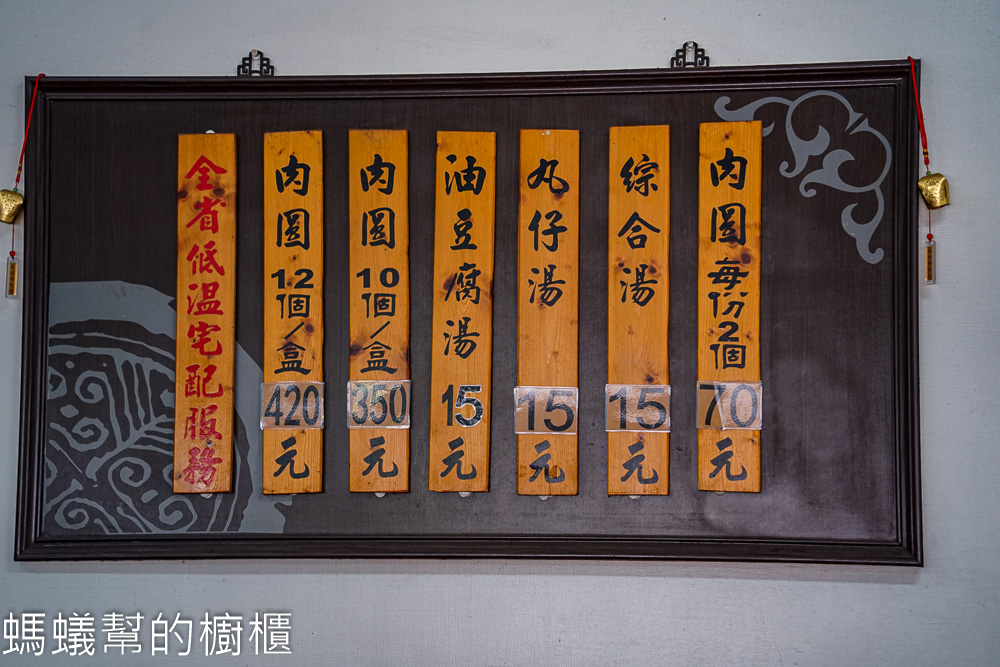 肉圓每份2個70元
綜合湯15元
丸仔湯15元
油豆腐湯15元
肉圓10個/盒350元
肉圓12個/盒420元
全省低溫宅配服務
螞蟻幫的櫥櫃